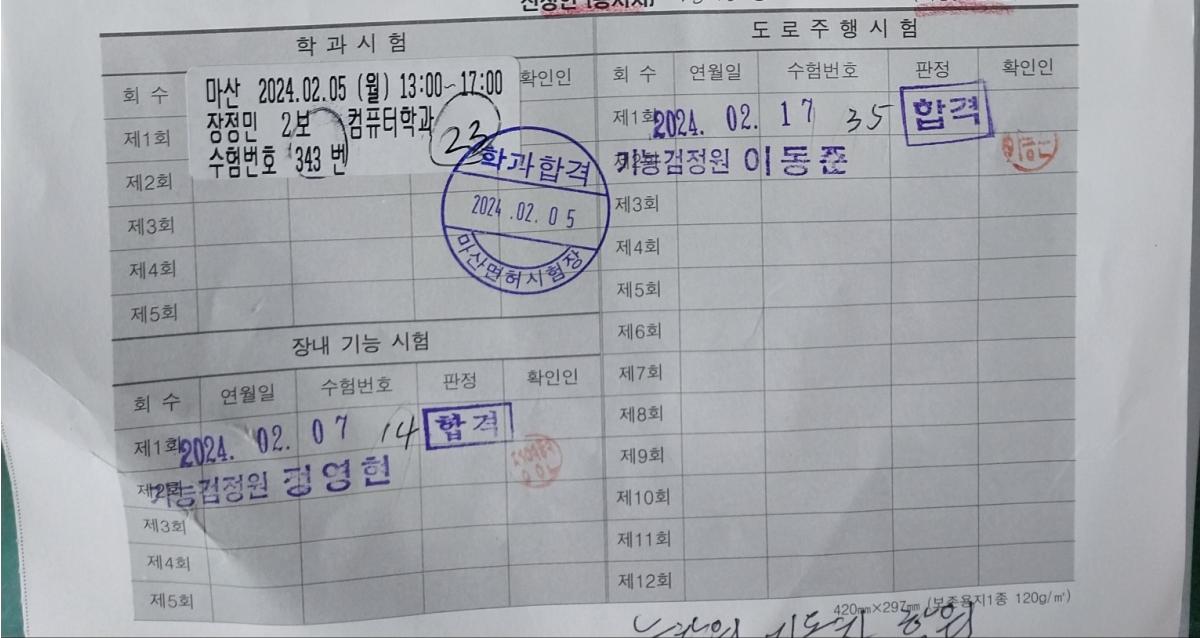 학과시험
회 수
확인인
마산 2024.02.05 (월) 13:00~17:00
장정민 2보 컴퓨터학과
수험번호 343 번
23
제1회
제2회
제3회
제4회
제5회
학과합격
2024.02.05
마산면허시험장
장내 기능 시험
회 수 연월일 수험번호 판정 확인인
제1회 2024. 02. 07 14 합격
제2회 기능검정원 정영현
제3회
제4회
제5회
도로주행시험
회 수 연월일 수험번호 판정 확인인
제1회 2024. 02. 17 35 합격
제2회 기능검정원 이동준
제3회
제4회
제5회
제6회
제7회
제8회
제9회
제10회
제11회
제12회
420㎜×297㎜ (보존용지1종 120g/㎡)